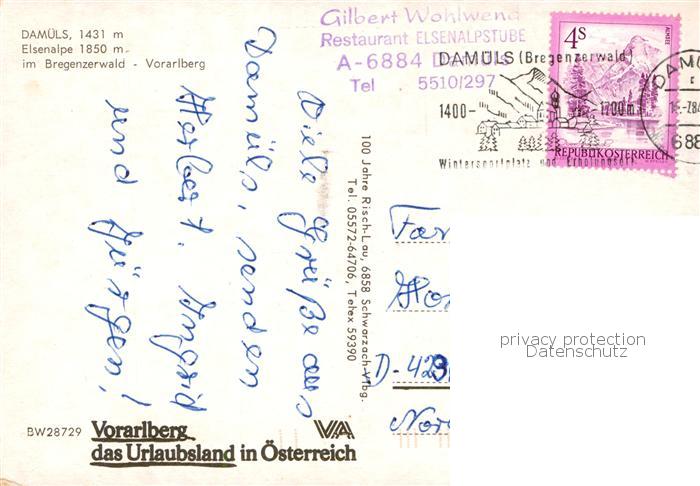 DAMÜLS, 1431 m
Elsenalpe 1850 m
im Bregenzerwald - Vorarlberg
Gilbert Wohlwend
Restaurant ELSENALPSTUBE
A-6884 D
Tel 5510/297
DAMÜLS (Bregenzerwald)
1400- -1700m
Wintersportplatz und Erholungsort
4S
REPUBLIK ÖSTERREICH
DAMÜ
688
Viele Grüße aus
Damüls, senden
Herbert, Ingrid
und Jürgen!
100 Jahre Risch-Lau, 6858 Schwarzach-Vlbg.
Tel. 05572-64706, Telex 59390
Fa
Ho
D-423
No
privacy protection
Datenschutz
BW28729
Vorarlberg
das Urlaubsland in Österreich
VA